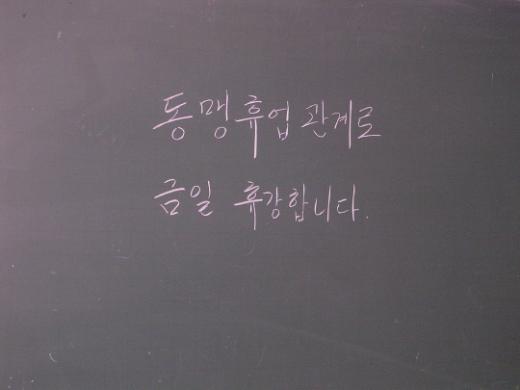 동맹휴업 관계로
금일 휴강합니다.